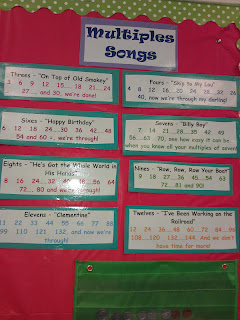 Multiples
Songs
Threes - "On Top of Old Smokey"
3 6 9 12 15.... 18 21....24
27.... and 30, we're done!
Fours - "Skip to My Lou"
4 8 12 16 20 24 28 32 36
40, now we're through my darling!
Sixes - "Happy Birthday"
6 12 16 24....30 36 42 48
54 and 60 =, we're through!
Sevens - "Billy Boy"
7 14 21....28....35 42 49
56....63 70, see how easy it can be,
when you know all your multiples of seven!
Eights - "He's Got the Whole World in
His Hands"
8 16 24....32 40 48....56 64
72.... 80 and we're through!
Nines - "Row, Row, Row Your Boat"
9 18 27....36 45....54 63
72....81 and 90!
Elevens - "Clementine"
11 22 33 44 55 66 77 88
99 110 121 132, and now we're
through!
Twelves - "I've Been Working on the
Railroad"
12 24 36....48 60....72 84....96
108....120 132....144. And we don't
have time for more!